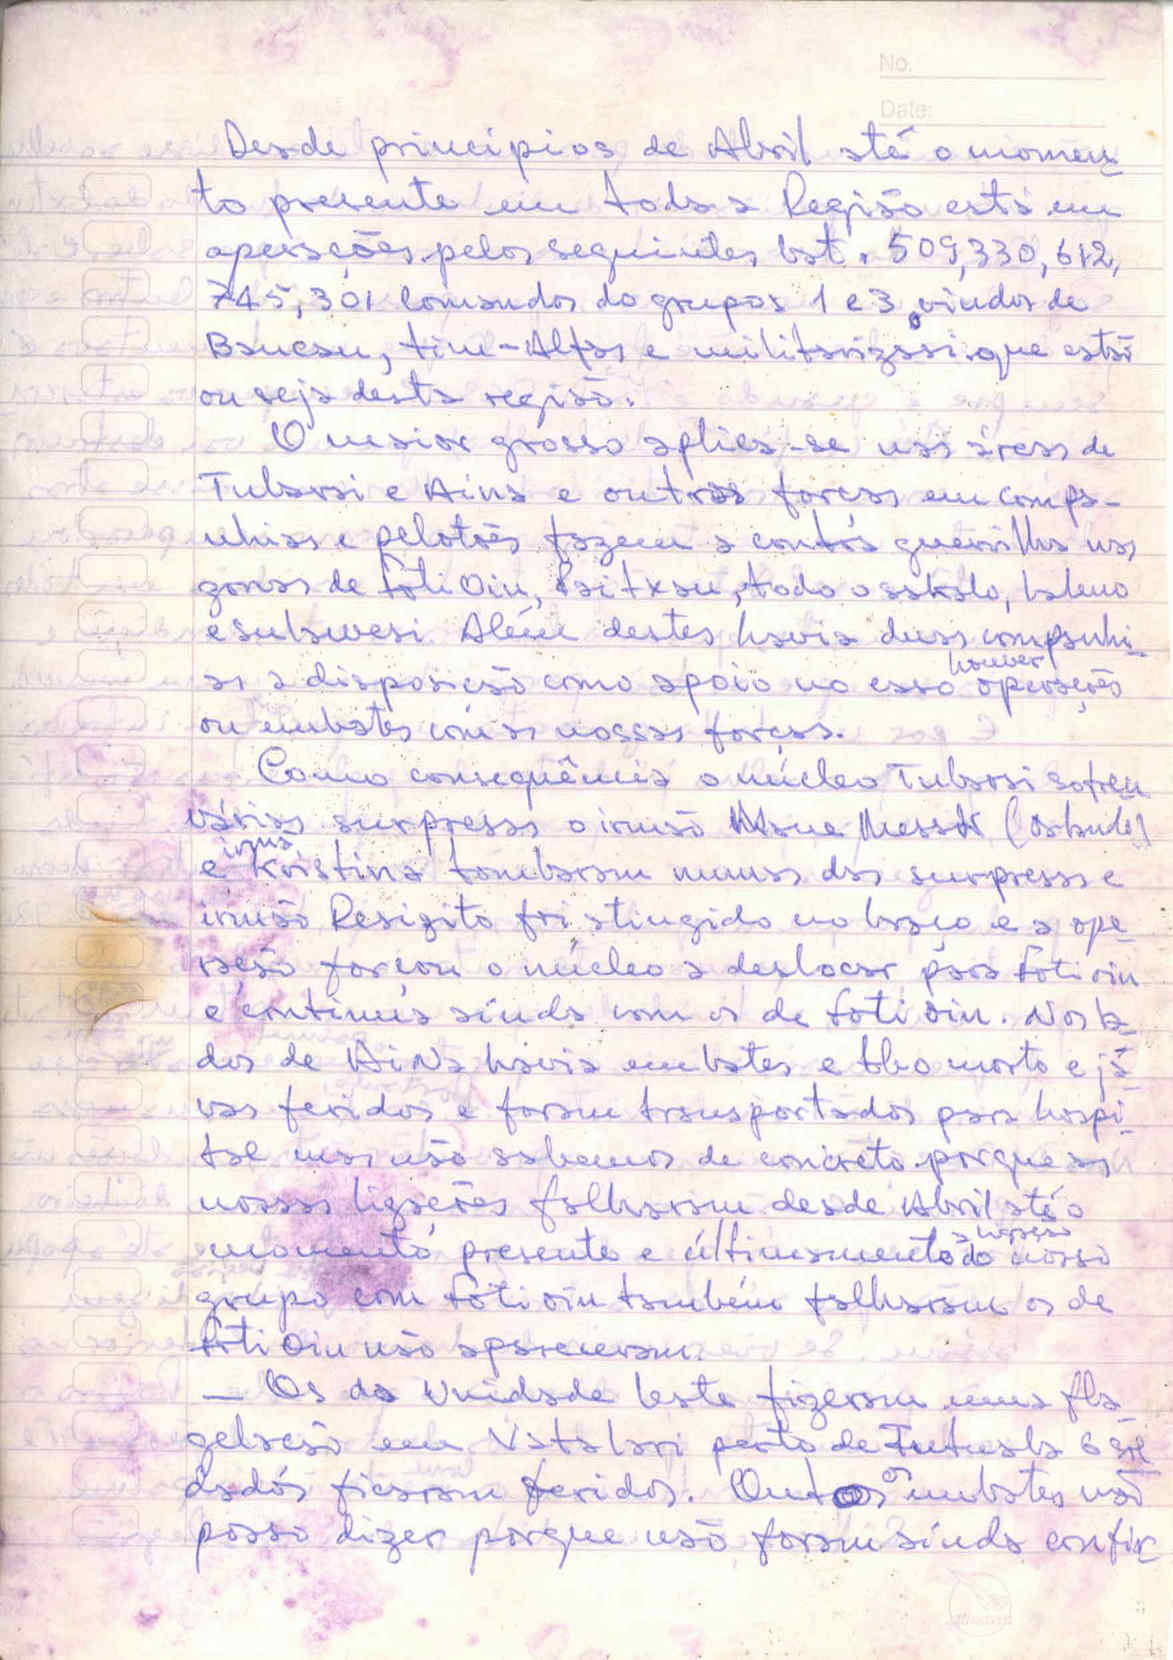 No.
Date:
Desde princípios de Abril até o momen-
to presente em toda a Região está em
operações pelos seguintes bat. 509, 330, 612,
745, 301 Comandos do grupos 1 e 3, vindos de
Baucau, tim-Alfas e militarizasi que estão
ou seja desta região.
O maior grosso aplica-se nas áreas de
Tubarai e Aina e outras forças em compa-
nhias e pelotões fazem a contra guerrilha nas
zonas de Foti Oin, todo o sakalo,
e subawesi. Além destes havia duas companhi-
houver
as a disposição como apoio no caso operações
ou embates com as nossas forças.
Como consequência o núcleo Tubarai sofreu
várias surpresas o irmão Mau Messak
irmã
e Kristina tombaram numas das surpresas e
irmão Resigito foi atingido no braço e a ope-
ração forçou o núcleo a deslocar para Foti oin
e continua ainda com os de Foti Oin. Nos la-
dos de AiNa havia embates e morto e já
vas feridos e foram transportados para hospi-
tal mas não sabemos de concreto porque as
nossas ligações falharam desde Abril até o
momento presente e últimamente do nosso
grupo com Foti oin também falharam os de
Foti Oin não apareceram.
— Os da Unidade leste fizeram uma fla-
gelação em Vatalari perto de 6 sol
dados ficaram feridos. Outros embates não
posso dizer porque não foram ainda confir-